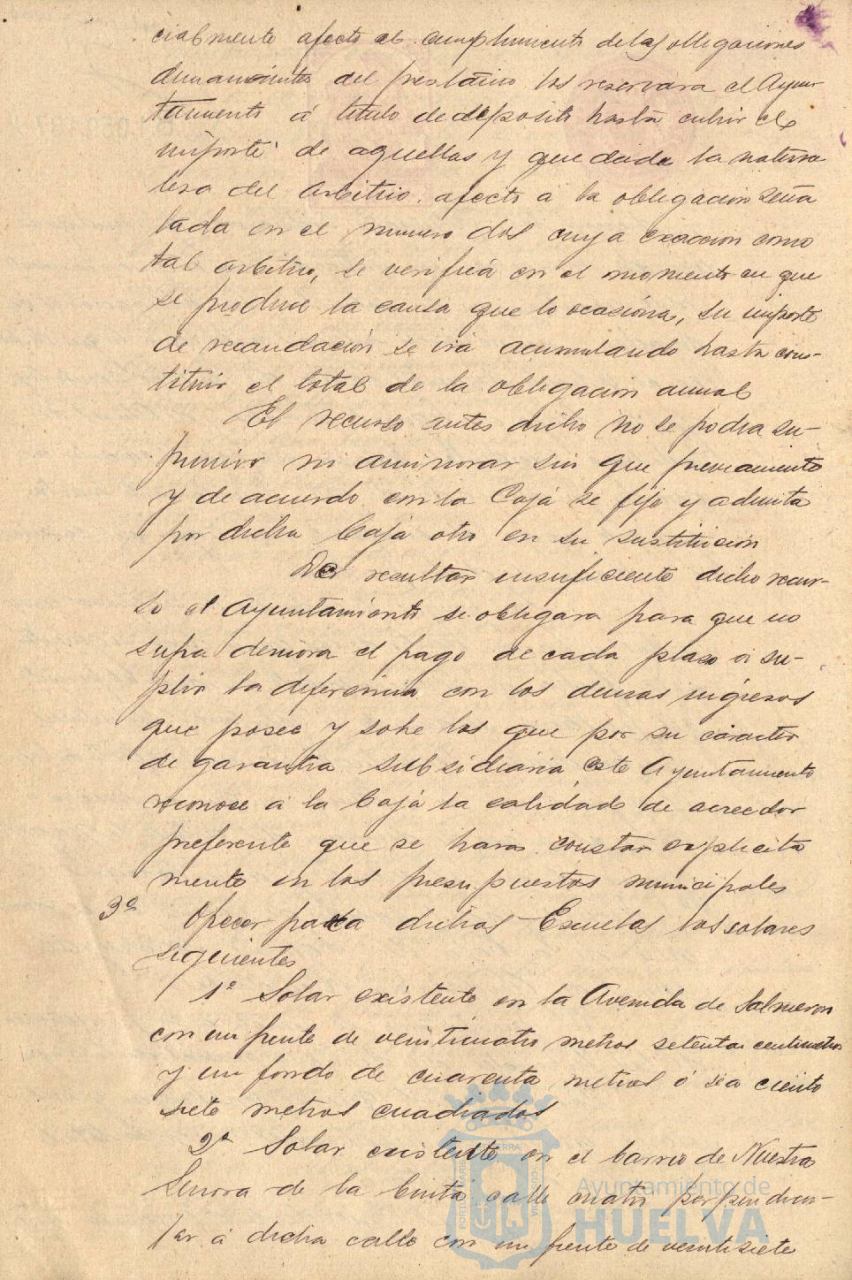 cialmente afecto al cumplimiento de las obligaciones
dimanantes del prestamo los reservara el Ayun-
tamiento á titulo de deposito hasta cubrir el
importe de aquellas y que dada la natura
leza del arbitrio afecto a la obligacion seña
lada en el numero dos cuya exaccion como
tal arbitrio, se verifica en el momento en que
se produce la causa que lo ocasiona, su importe
de recaudacion se ira acumulando hasta cons-
tituir el total de la obligacion anual
El recurso antes dicho no se podra su-
primir ni aminorar sin que previamente
y de acuerdo con la Caja se fije y admita
por dicha Caja otro en su sustitucion
De resultar insuficiente dicho recur-
so el Ayuntamiento se obligara para que no
sufra demora el pago de cada plazo á su-
plir la diferencia con los demas ingresos
que posee y sobre los que por su caracter
de garantia subsidiaria este Ayuntamiento
reconoce á la Caja la calidad de acreedor
preferente que se hara constar explicita
mente en los presupuestos municipales
3º Ofrecer para dichas Escuelas los solares
siguientes
1º Solar existente en la Avenida de Salmeron
con un frente de veinticuatro metros setenta centimetros
y un fondo de cuarenta metros ó sea ciento
siete metros cuadrados
2º Solar existente en el barrio de Nuestra
Señora de la Cinta calle cuatro perpendicu-
lar á dicha calle con un frente de veintisiete
Ayuntamiento de
HUELVA